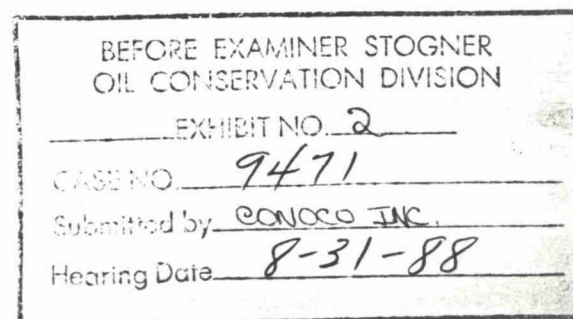 BEFORE EXAMINER STOGNER
OIL CONSERVATION DIVISION
EXHIBIT NO. 2
CASE NO. 9471
Submitted by CONOCO INC.
Hearing Date 8-31-88